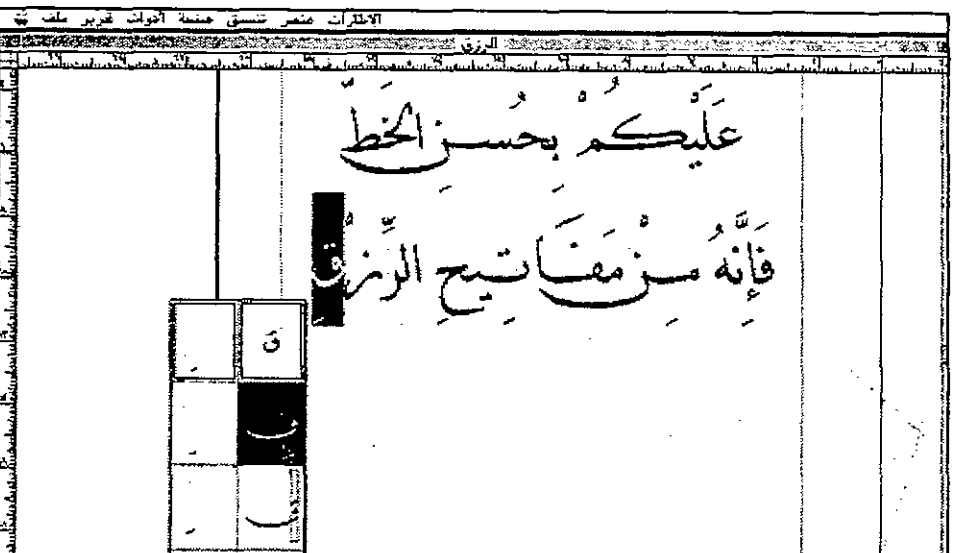 ملف تحرير أدوات صفحة تنسيق عنصر الاطارات
الرزق
عَلَيْكُمْ بِحُسنِ الخَطِّ
فَإِنَّهُ مِنْ مَفَاتِيحِ الرِّزْقِ
ق